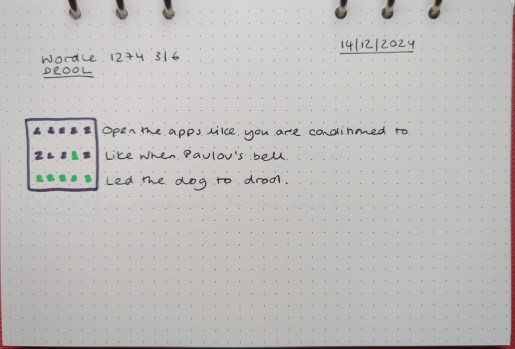 14/12/2024
Wordle 1274 3/6
DROOL
Open the apps like you are conditioned to
Like when Pavlov's bell
Led the dog to drool.